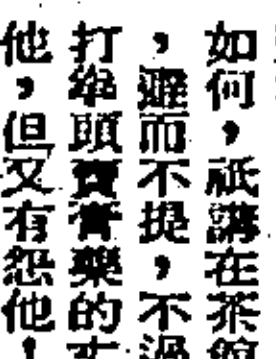 如何，祇講在茶館
，避而不提，不過
打拳頭賣膏藥的
他，但又有怨他！